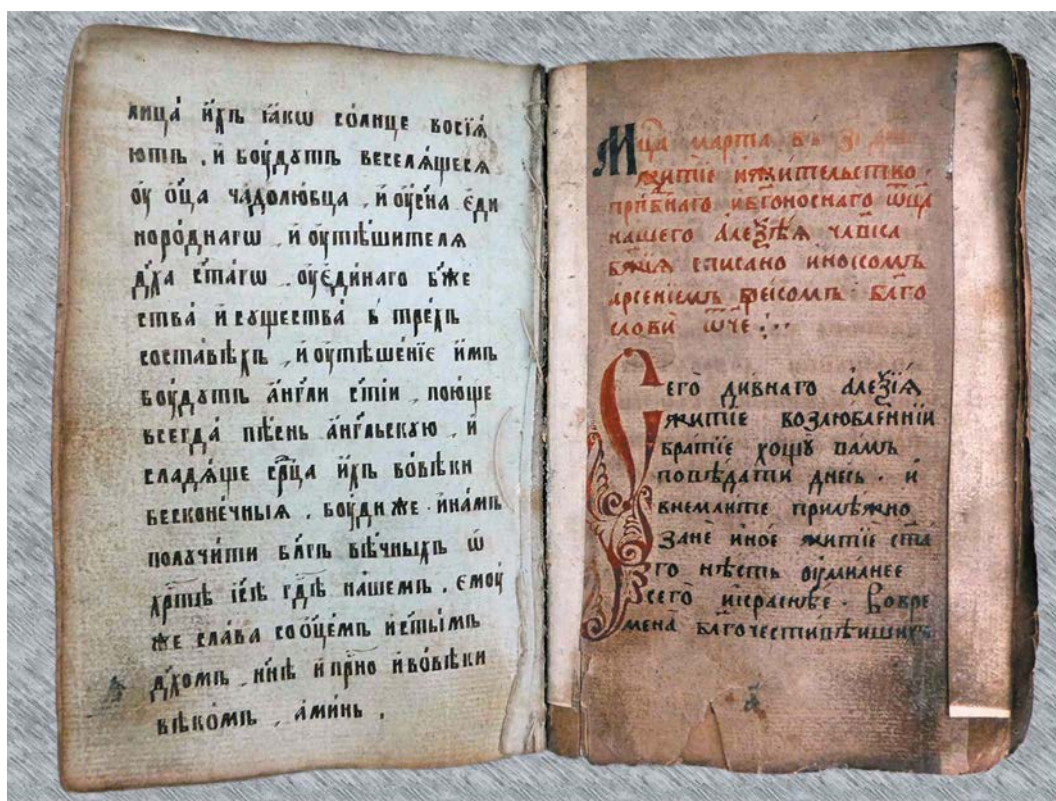 лица́ и́хъ ꙗ́кѡ со́лнце восїѧ́
ютъ , и҆ бꙋ́дꙋтъ веселѧ́щесѧ
оу҆ ѻ҆ц҃а̀ чадолю́бца , и҆ оу҆ сн҃а є҆ди
норо́днагѡ , и҆ оу҆тѣ́шителѧ
дх҃а ст҃а́гѡ , оу҆ є҆ди́наго бж҃е
ства̀ и҆ сꙋщества̀ в трє́хъ
соста́вѣхъ , и҆ оу҆тѣше́нїе и҆̀мъ
бꙋ́дꙋтъ а҆́гг҃ли ст҃і́и , пою́ще
всегда̀ пѣ́снь а҆́гг҃льскꙋю , и҆
сладѧ́ще ср҃ца и҆́хъ во вѣ́ки
безконе́чныѧ , бꙋ́ди же и҆ на́мъ
полꙋчи́ти бл҃гъ вѣ́чныхъ ѡ҆
хр҃тѣ̀ і҆с҃ѣ гд҃ѣ на́шемъ , є҆мꙋ́
же сла́ва со ѻ҆ц҃е́мъ и҆ ст҃ы́имъ
дх҃омъ , нн҃ѣ и҆ пр҃но и҆ во вѣ́ки
вѣ́комъ , а҆ми́нь ,
Мц҃а марта въ з҃і дн҃ь
житїе и҆ жи́тельство
прпⷣбнаго и҆ бг҃оноснаго ѻ҆ц҃а
нашего Але́ѯїѧ чл҃вка
бж҃їѧ списано и҆нокомъ
арсенїемъ грекомъ благо
слови ѻ҆тче :
Сего̀ ди́внаго але́ѯїѧ
житїе возлю́бленнїи
бра́тїе хощꙋ̀ ва́мъ
повѣ́дати дне́сь . и҆
внемли́те прилѣ́жно
занѐ и҆но́е житїе ст҃а
го нѣ́сть оу҆ми́лнее
сего̀ и҆ краснѣ́е . Во вре
мена̀ бл҃гочести́вѣиших